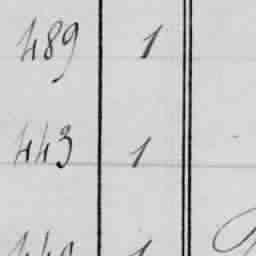 489 1
443 1